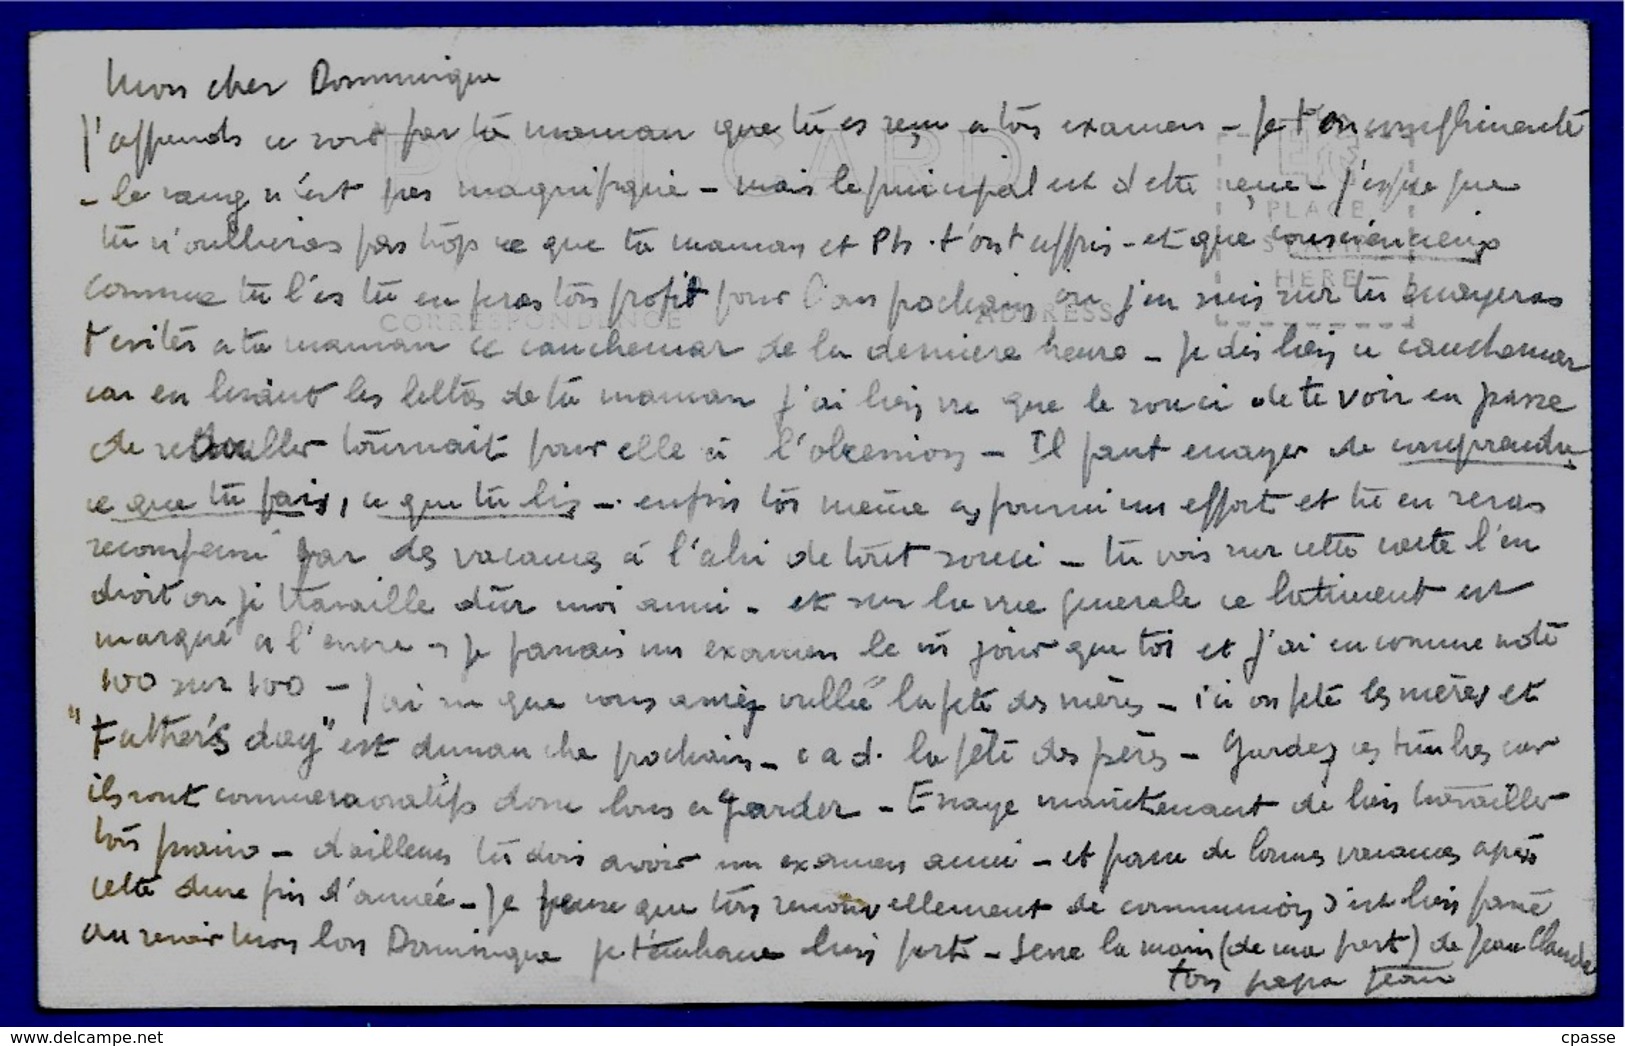 Mon cher Dominique
J'apprends ce soir par ta maman que tu es reçu a ton examen - Je t'en complimente
- le rang n'est pas magnifique - mais le principal est d'etre reçu - j'espere que
tu n'oublieras pas trop ce que ta maman et Ph. t'ont appris - et que consciencieux
comme tu l'es tu en feras ton profit pour l'an prochain ou j'en suis sur tu essayeras
d'eviter a ta maman ce cauchemar de la derniere heure - Je dis bien ce cauchemar
car en lisant les lettres de ta maman j'ai bien vu que le souci de te voir en passe
de redoubler tournait pour elle à l'obsession - Il faut essayer de comprendre
ce que tu fais, ce que tu lis - enfin toi même as fourni un effort et tu en seras
recompensé par des vacances à l'abri de tout souci - tu vois sur cette carte l'en
droit ou je travaille dur moi aussi - et sur la vue generale ce batiment est
marqué a l'encre - Je passais un examen le m jour que toi et j'ai eu comme note
100 sur 100 - J'ai su que vous aviez oublié la fete des mères - ici on fete les mères et
"Father's day" est dimanche prochain - c a d. la fête des pères - Gardez ces timbres car
ils sont commemoratifs donc bons a garder - Essaye maintenant de bien travailler
ton piano - d'ailleurs tu dois avoir un examen aussi - et passe de bonnes vacances après
cette dure fin d'année - Je pense que ton renouvellement de communion s'est bien passé
au revoir mon bon Dominique je t'embrasse bien fort - Serre la main (de ma part) de Jean Claude
ton papa Jean
POST CARD
PLACE
STAMP
HERE
CORRESPONDENCE
ADDRESS
cpasse